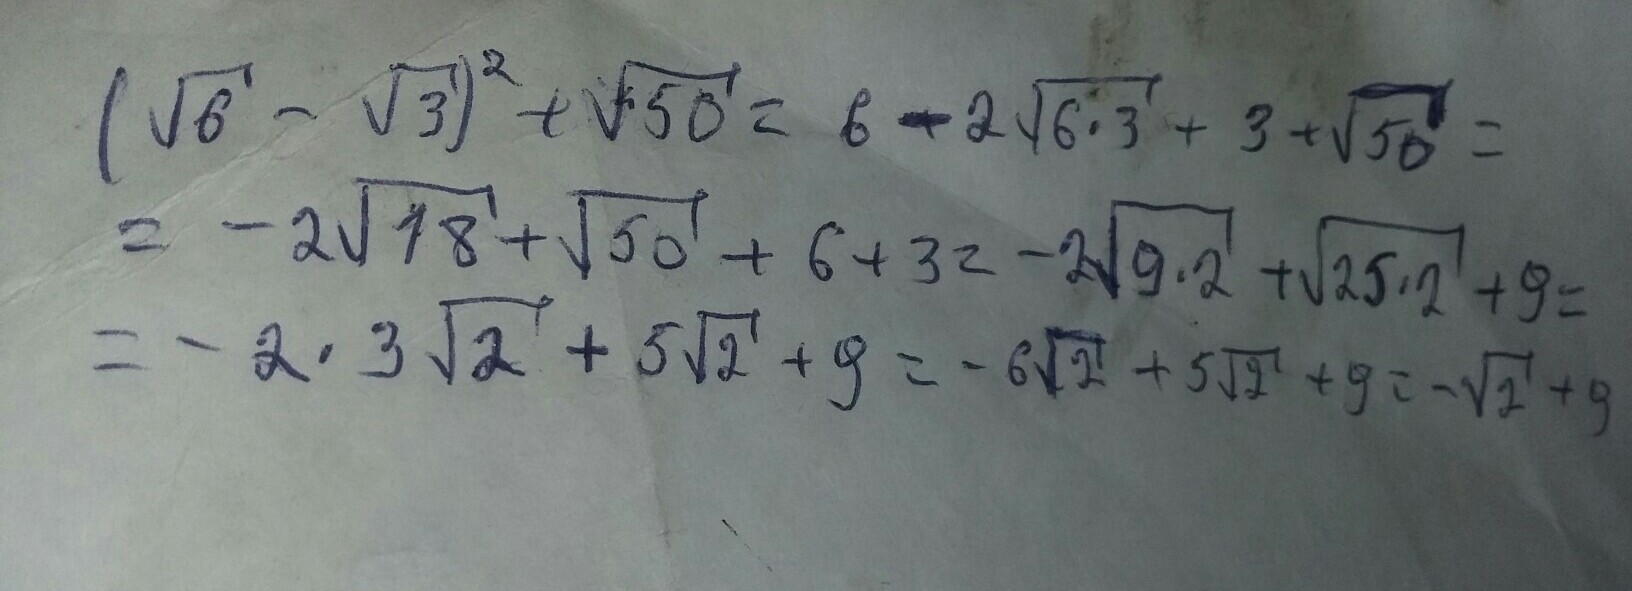 (√6 - √3)² + √50 = 6 - 2√6·3 + 3 + √50 =
= -2√18 + √50 + 6 + 3 = -2√9·2 + √25·2 + 9 =
= -2·3√2 + 5√2 + 9 = -6√2 + 5√2 + 9 = -√2 + 9